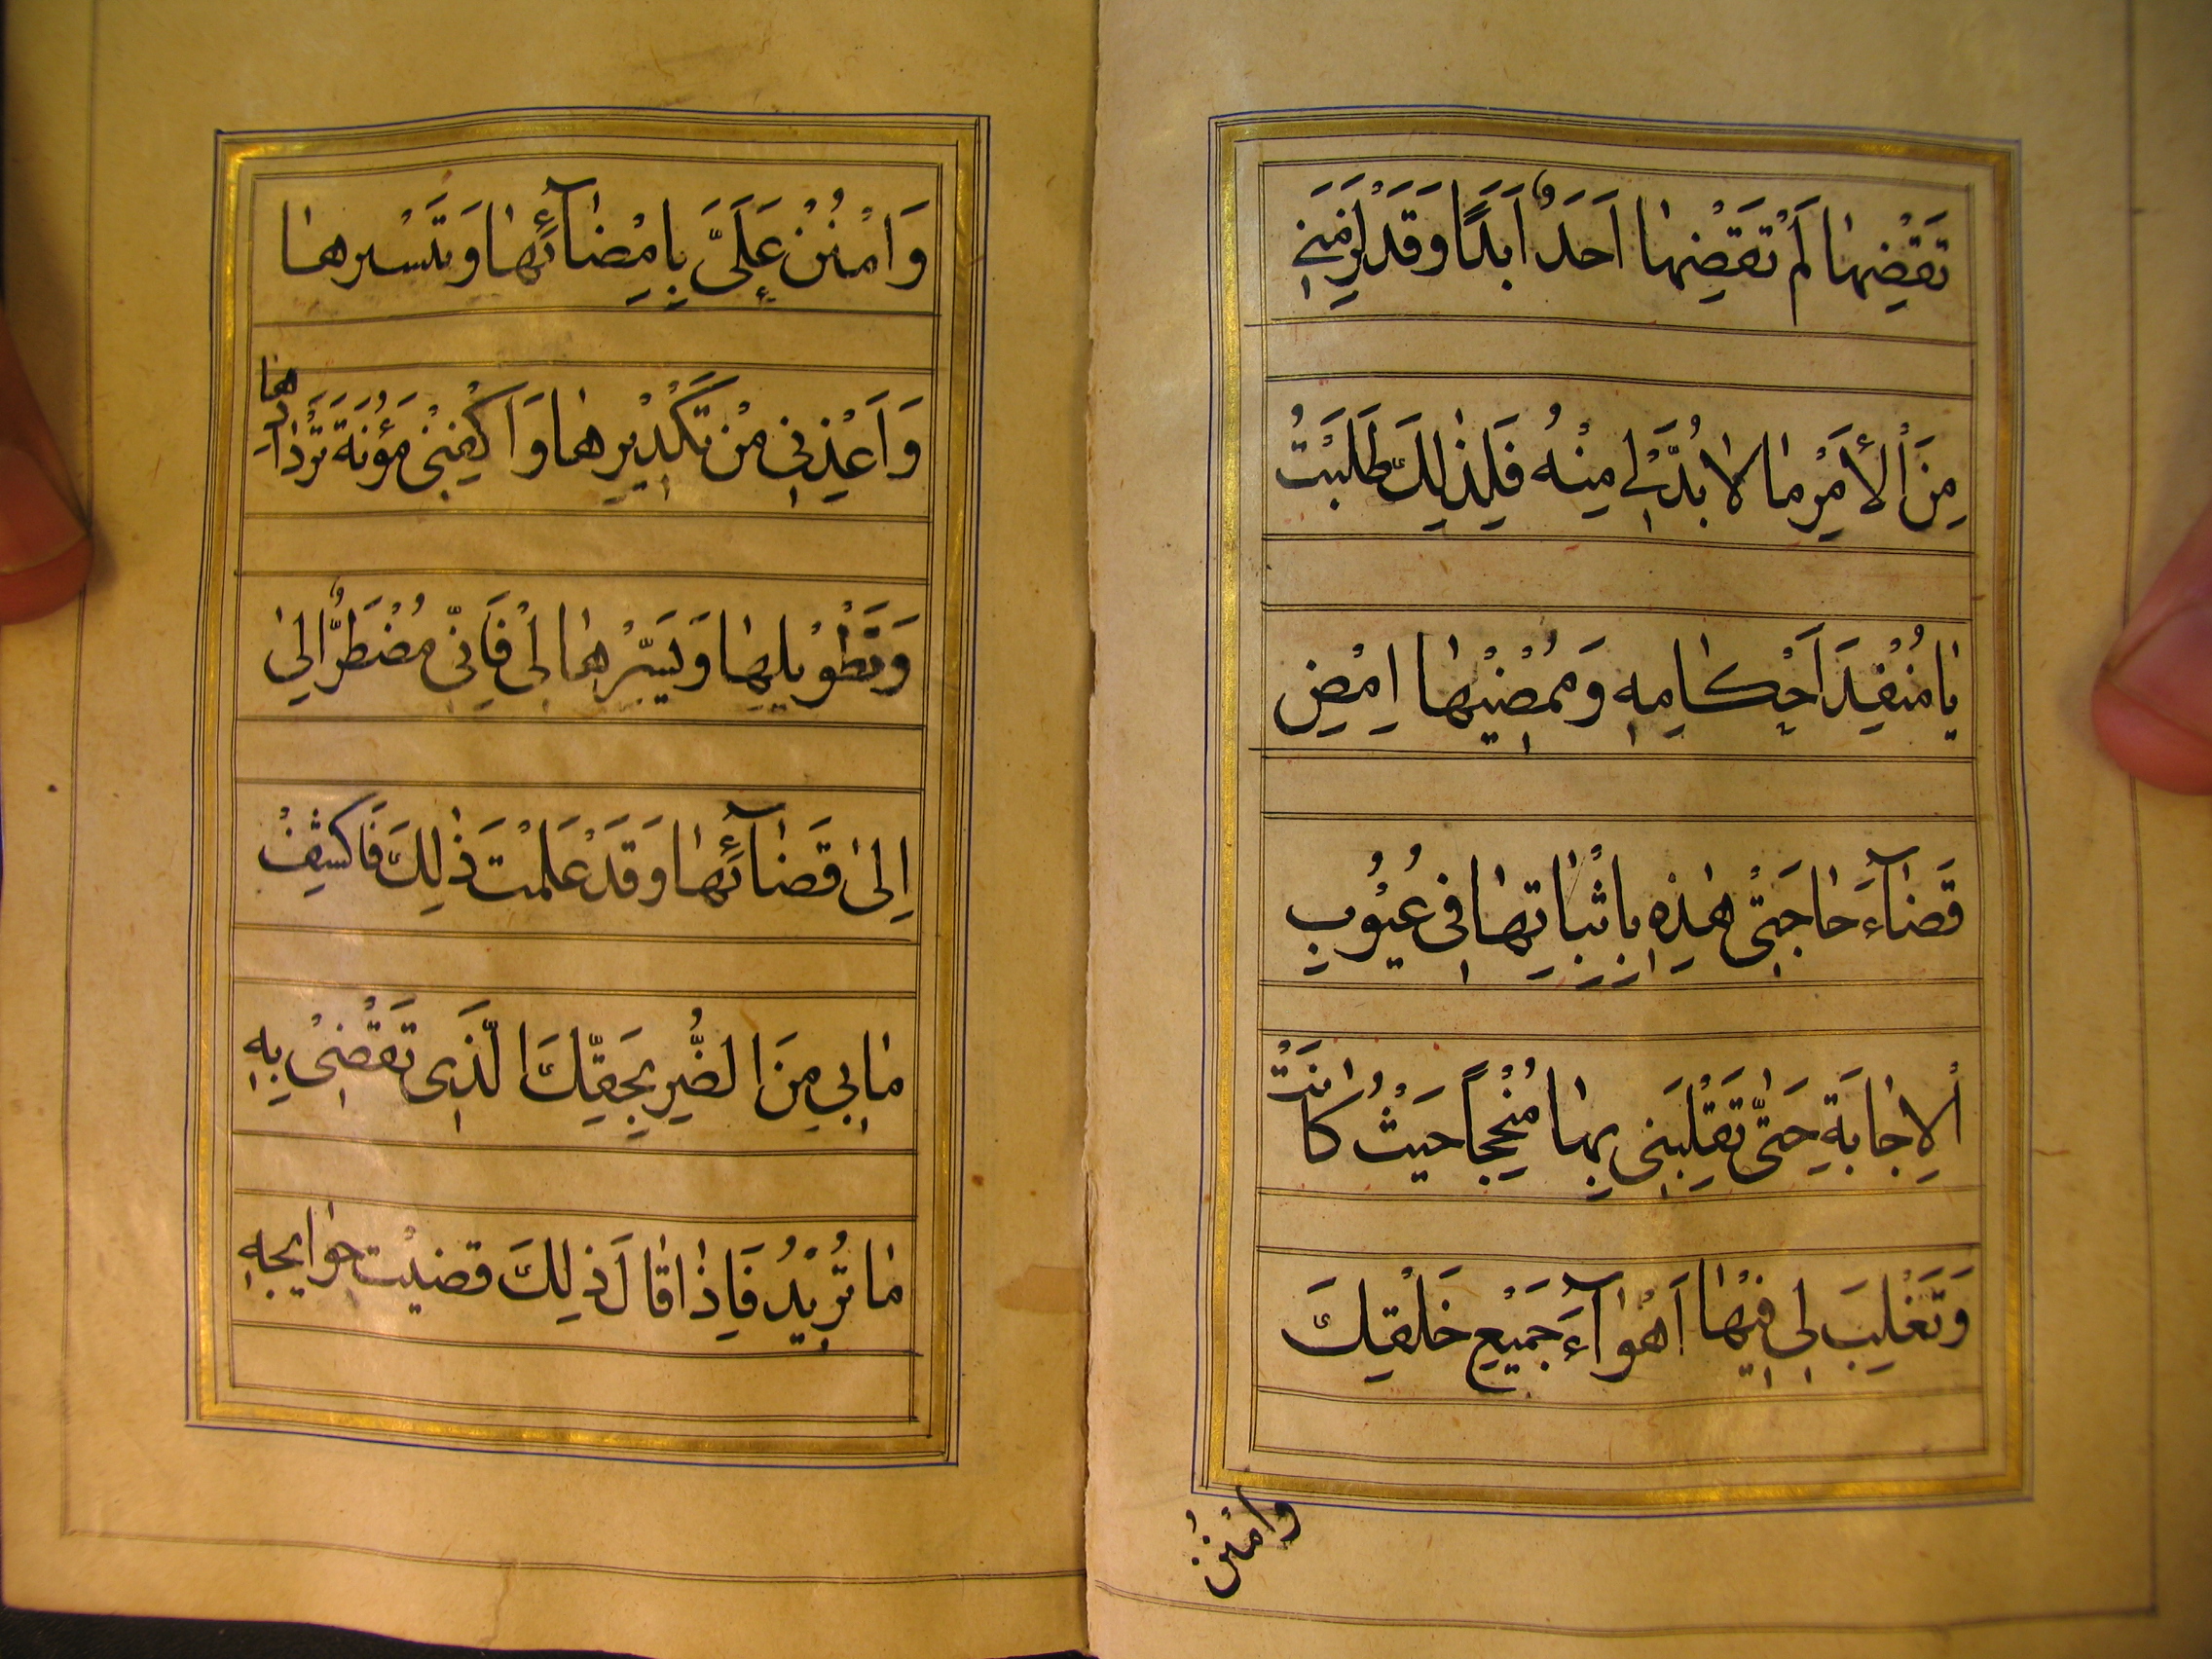 تَقْضِهٰا لَمْ تَقْضِهٰا اَحَدٌ اَبَدًا وَقَدْ لَزِمَنِي
مِنَ الْأَمْرِ مٰا لٰا بُدَّ لِي مِنْهُ فَلِذٰلِكَ طَلَبْتُ
يٰا مُنْفِذَ اَحْكٰامِهِ وَمُمْضِيْهٰا اِمْضِ
قَضٰآءَ حٰاجَتِي هٰذِهِ بِاِثْبٰاتِهٰا فِي غُيُوبِ
الْاِجٰابَةِ حَتّٰى تَقْلِبَنِي بِهٰا مُنْجِحاً حَيْثُ كٰانَتْ
وَتَغْلِبَ لِي فِيْهٰا اَهْوٰآءَ جَمِيْعِ خَلْقِكَ
وامْنُنْ
وَامْنُنْ عَلَيَّ بِاِمْضٰآئِهٰا وَتَيْسيرِهٰا
وَاَعِذْنِي مِنْ تَكْدِيْرِهٰا وَاكْفِنِيْ مَؤُنَةَ تَرْدٰادِهٰا
وَتَطْوِيلِهٰا وَيَسِّرْهٰا لِي فَاِنِّي مُضْطَرٌّ اِلىٰ
اِلىٰ قَضٰآئِهٰا وَقَدْ عَلِمْتَ ذٰلِكَ فَاكْشِفْ
مٰا بِي مِنَ الضُّرِ بِحَقِّكَ الَّذِى تَقْضِيْ بِهِ
مٰا تُرِيْدُ فَاِذٰا قٰالَ ذٰلِكَ قضيْت حوٰايجهِ